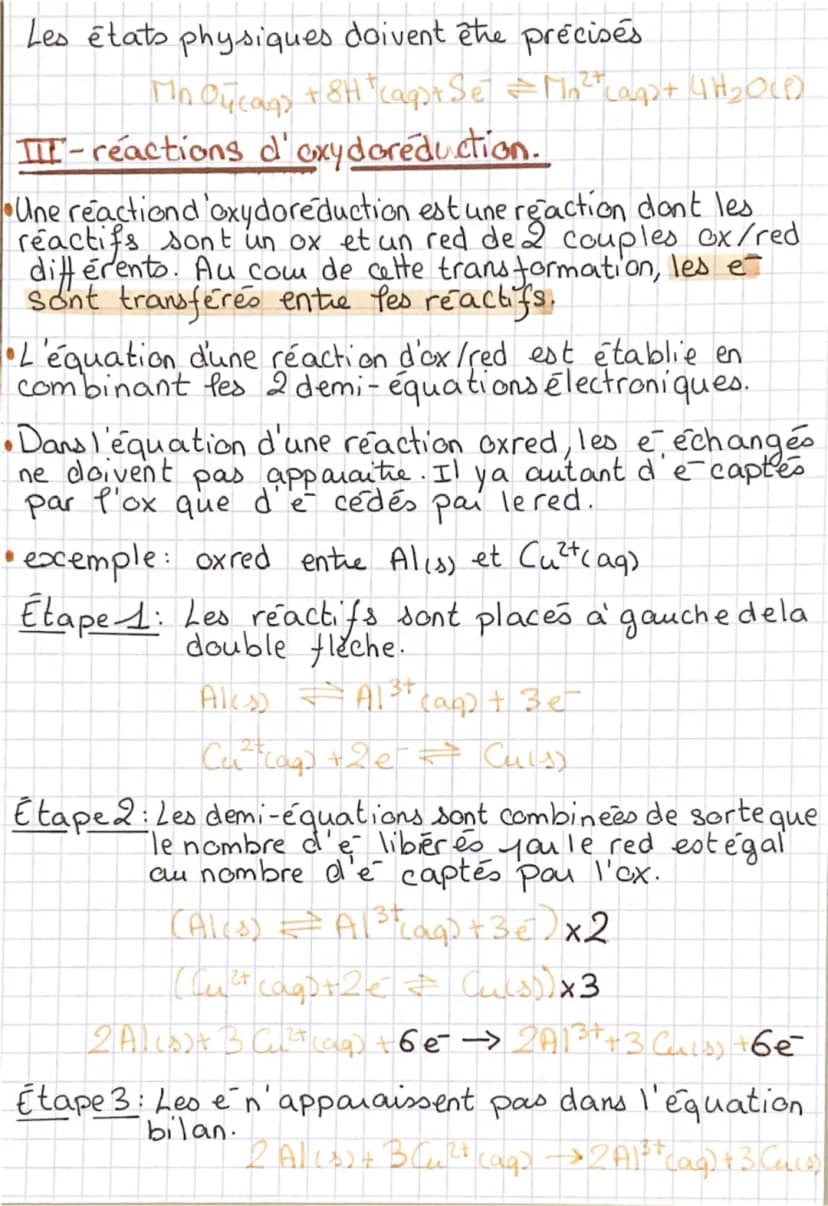 Les états physiques doivent être précisés
MnO₄⁻(aq) + 8H⁺(aq) + 5e⁻ ⇌ Mn²⁺(aq) + 4H₂O(l)
III - réactions d'oxydoréduction.
• Une réaction d'oxydoréduction est une réaction dont les
réactifs sont un ox et un red de 2 couples ox/red
différents. Au cour de cette transformation, les e⁻
sont transférés entre les réactifs.
• L'équation d'une réaction d'ox/red est établie en
combinant les 2 demi-équations électroniques.
• Dans l'équation d'une réaction oxred, les e⁻ échangés
ne doivent pas apparaitre. Il y a autant d'e⁻ captés
par l'ox que d'e⁻ cédés par le red.
• exemple: oxred entre Al(s) et Cu²⁺(aq)
Étape 1: Les réactifs sont placés à gauche de la
double flèche.
Al(s) ⇌ Al³⁺(aq) + 3e⁻
Cu²⁺(aq) + 2e⁻ ⇌ Cu(s)
Étape 2: Les demi-équations sont combinées de sorte que
le nombre d'e⁻ libérés par le red est égal
au nombre d'e⁻ captés par l'ox.
(Al(s) ⇌ Al³⁺(aq) + 3e⁻) x2
(Cu²⁺(aq) + 2e⁻ ⇌ Cu(s)) x3
2Al(s) + 3Cu²⁺(aq) + 6e⁻ → 2Al³⁺ + 3Cu(s) + 6e⁻
Étape 3: Les e⁻ n'apparaissent pas dans l'équation
bilan.
2Al(s) + 3Cu²⁺(aq) → 2Al³⁺(aq) + 3Cu(s)